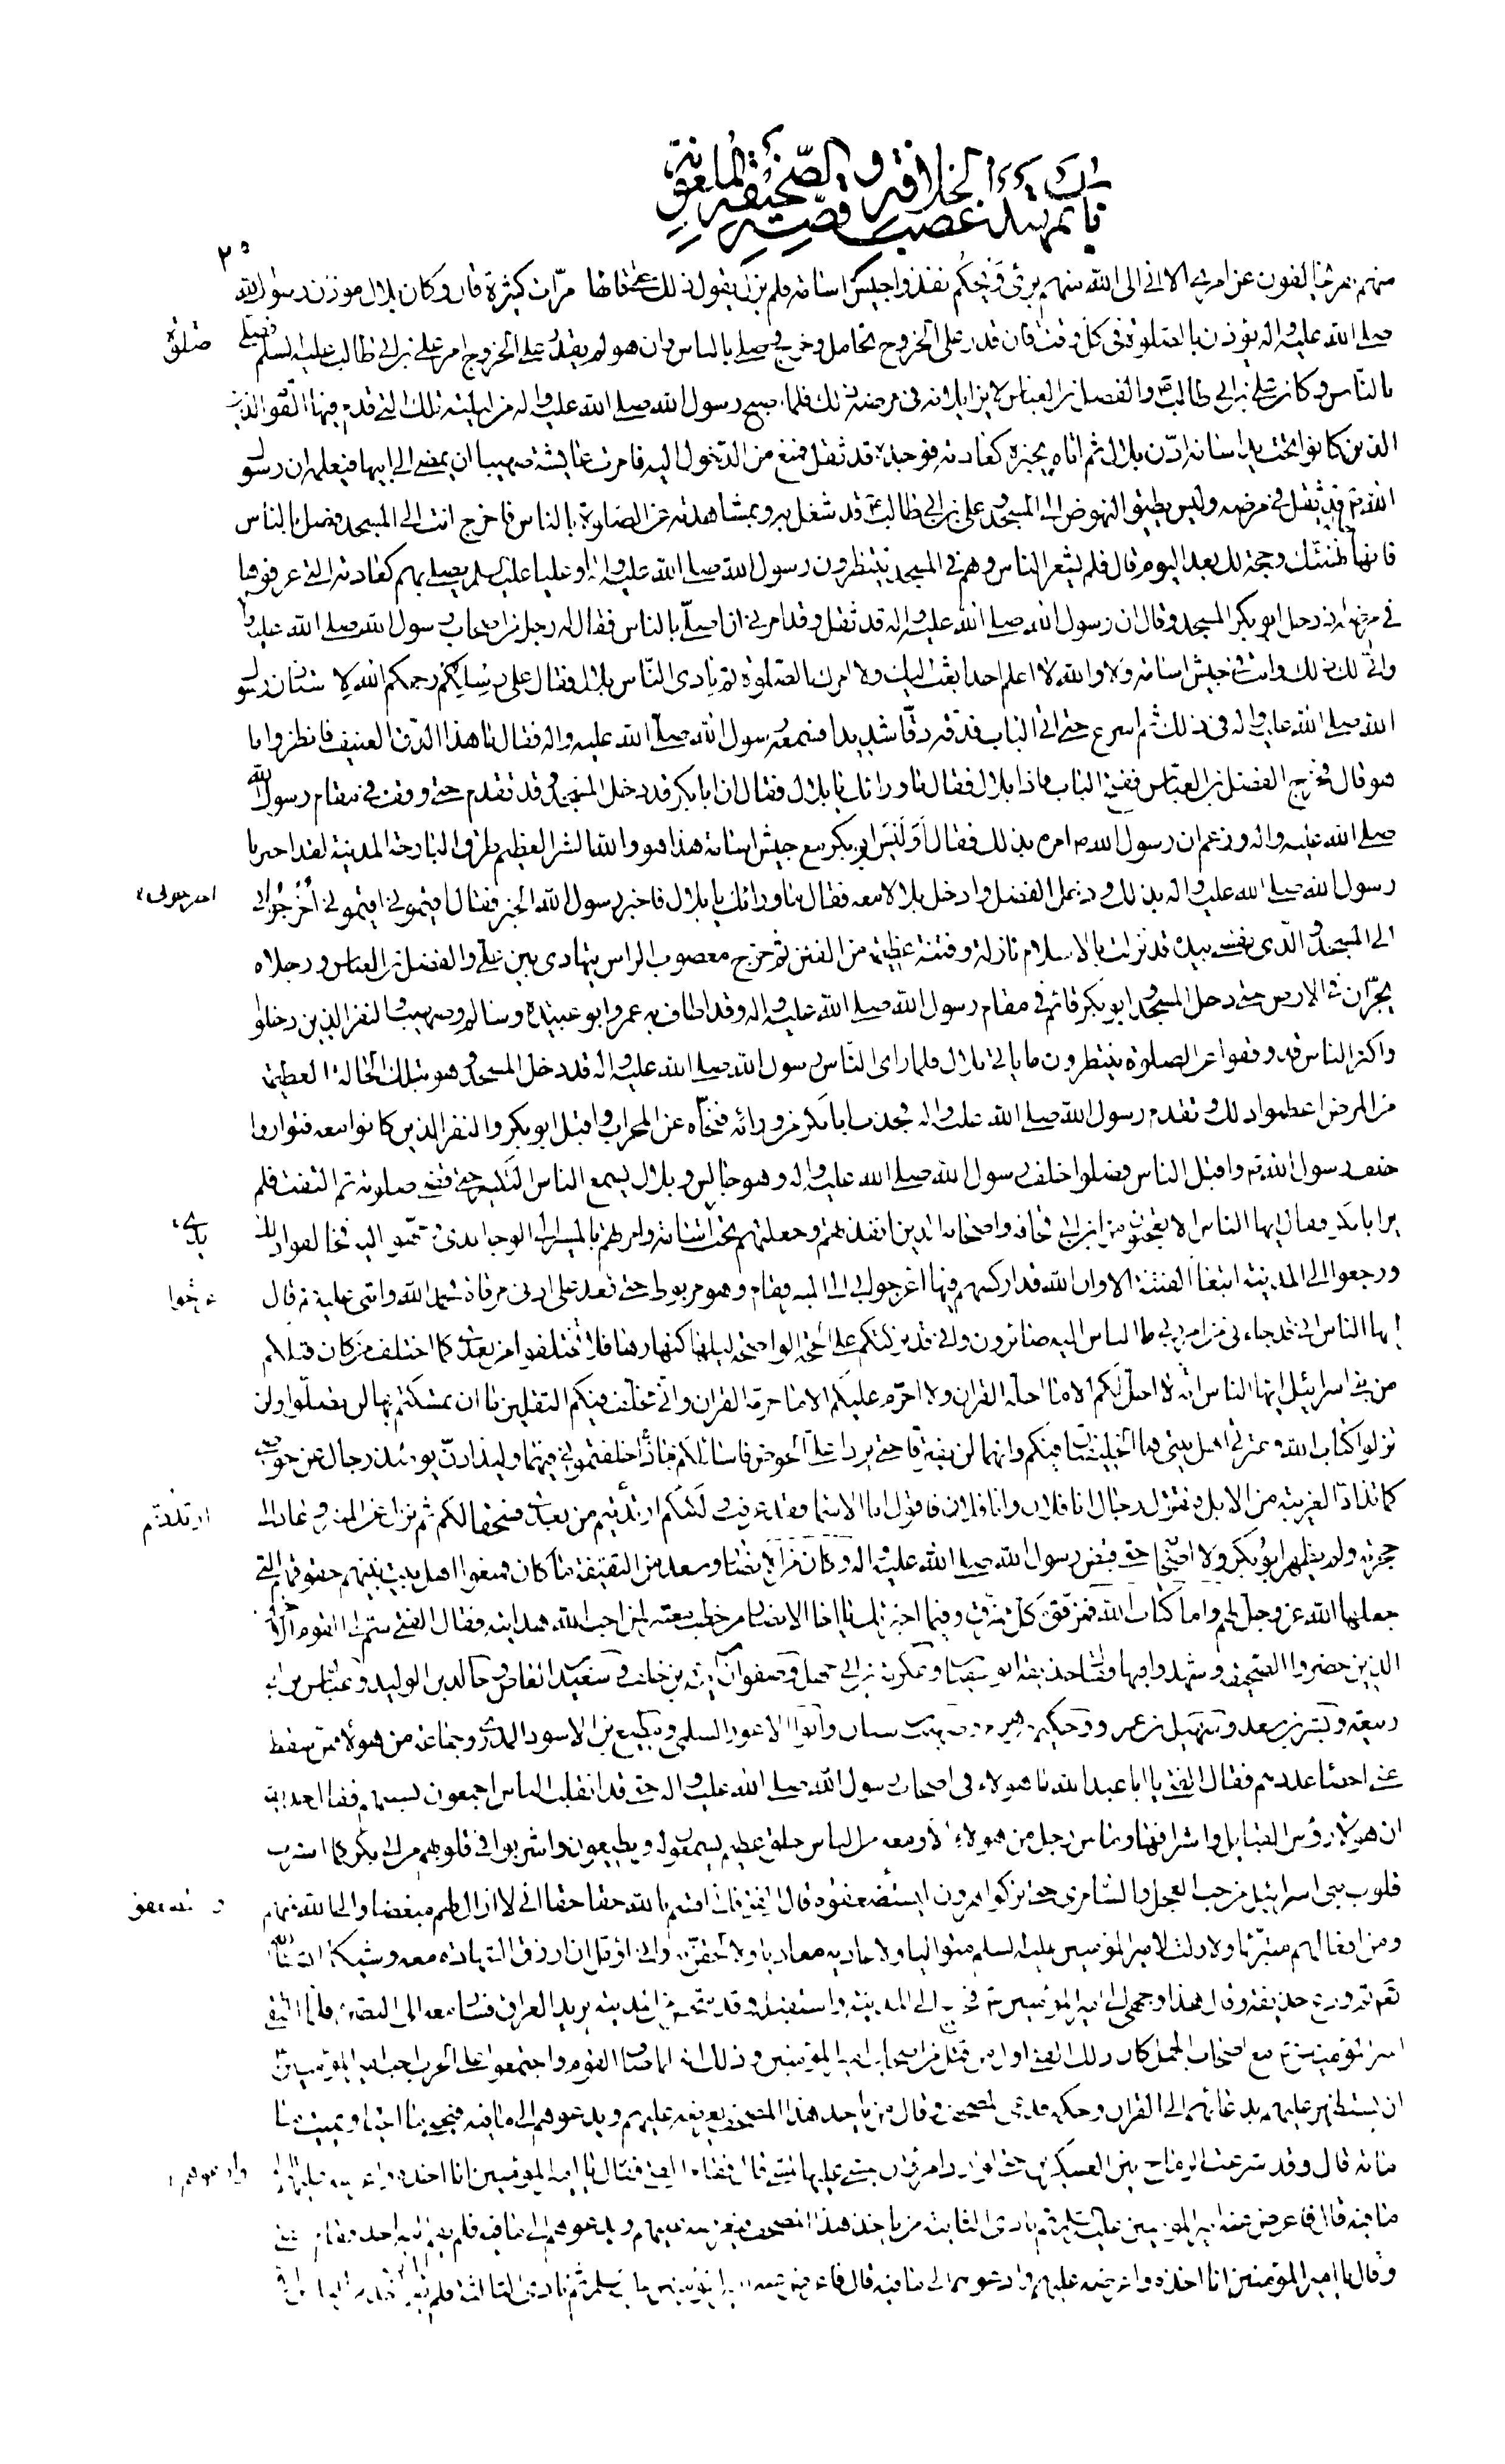 باب تمهيد غصب الخلافة و قصة الصحيفة الملعونة
٢٥
منهم بمن يخالفون عن امري الا اني الى الله منهم برئ ويحكم نفذوا جيش اسامة فلم يزل يقول ذلك حتى قالها مرّات كثيرة قال وكان بلال موذن رسول الله
صلى الله عليه واله يؤذن بالصلوة في كل وقت فان قدر على الخروج تحامل وخرج وصلى بالناس وان هو لم يقدر على الخروج امر علي بن ابي طالب عليه السلم فصلى
صلوة
بالناس وكان علي بن ابي طالب والفضل بن العباس لا يزايلانه في مرضه ذلك فلما اصبح رسول الله صلى الله عليه واله من ليلته تلك التي قدم فيها القوم الذين
الذين كانوا تحت يدي اسامة اذّن بلال ثم اتاه يخبره كعادته فوجده قد ثقل فمنع من الدخول اليه فامرت عايشة صهيبا ان يمضي الى ابيها فيعلمه ان رسو
الله قد ثقل في مرضه وليس يطيق النهوض الى المسجد وعلي بن ابي طالب قد شغل به وبمشاهدته عن الصلوة بالناس فاخرج انت الى المسجد فصل بالناس
فانها تهنئك وحجة لك بعد اليوم قال فلم يشعر الناس وهم في المسجد ينتظرون رسول الله صلى الله عليه واله او عليا عليه السلم يصلى بهم كعادته التي عرفوها
في مرضه اذ دخل ابو بكر المسجد وقال ان رسول الله صلى الله عليه واله قد ثقل وقد امرني ان اصلّي بالناس فقال له رجل من اصحاب رسول الله صلى الله عليه وا
وانّى لك ذلك وانت في جيش اسامة ولا والله لا اعلم احدا بعث اليك ولا امرك بالصلوة ثم نادى النّاس بلال فقال على رسلكم رحمكم الله لا ستاذن رسو
الله صلى الله عليه واله في ذلك ثم اسرع حتى اتى الباب فدقه دقّا شديدا فسمعه رسول الله صلى الله عليه واله فقال ما هذا الدق العنيف فانظروا ما
هو قال فخرج الفضل بن العبّاس ففتح الباب فاذا بلال فقال ما وراءك يا بلال فقال ان ابا بكر قد دخل المسجد وقد تقدم حتى وقف في مقام رسول الله
صلى الله عليه واله وزعم ان رسول الله ص امره بذلك فقال أوَ ليس ابو بكر مع جيش اسامة هذا هو والله الشر العظيم طرق البارحة المدينة لقد اخبرنا
رسول الله صلى الله عليه واله بذلك ودخل الفضل وادخل بلالا معه فقال ما وراءك يا بلال فاخبر رسول الله الخبر فقال اقيموني اقيموني أخرجوا بي
الى المسجد والّذي نفسي بيده قد نزلت بالاسلام نازلة وفتنة عظيمة من الفتن ثم خرج معصوب الراس يتهادى بين علي والفضل بن العباس ورجلاه
يجرّان في الارض حتى دخل المسجد وابو بكر قائم في مقام رسول الله صلى الله عليه واله وقد اطاف به عمر وابو عبيدة وسالم وصهيب والنفر الذين دخلوا
واكثر الناس قد وقفوا عن الصلوة ينتظرون ما ياتي بلال فلما راى النّاس رسول الله صلى الله عليه واله قد دخل المسجد وهو بتلك الحالة العظيمة
من المرض اعظموا ذلك وتقدم رسول الله صلى الله عليه واله فجذب ابا بكر من ورائه فنحّاه عن المحراب واقبل ابو بكر والنفر الذين كانوا معه فتواروا
خلف رسول الله واقبل الناس فصلوا خلف رسول الله صلى الله عليه واله وهو جالس وبلال يسمع الناس التكبير حتى قضى صلوته ثم التفت فلم
ير ابا بكر فقال ايها الناس الا تعجبون من ابن ابي قحافة واصحابه الذين انفذتهم وجعلتهم تحت يدي اسامة وامرتهم بالمسير الى الوجه الذي وجهوا اليه فخالفوا ذلك
ورجعوا الى المدينة ابتغاء الفتنة الا وان الله قد اركسهم فيها اعرجوا بي الى المنبر فقام وهو مربوط حتى قعد على ادنى مرقاة فحمد الله واثنى عليه ثم قال
ايها الناس اني قد جاءني من امر ربي ما الناس اليه صائرون واني قد تركتكم على الحجة الواضحة ليلها كنهارها فلا تختلفوا من بعدي كما اختلف من كان قبلكم
من بني اسرائيل ايها الناس انه لا احل لكم الا ما احله القران ولا احرّم عليكم الا ما حرمه القران واني مخلف فيكم الثقلين ما ان تمسكتم بهما لن تضلوا ولن
تزلوا كتاب الله وعترتي اهل بيتي هما الخليفتان فيكم وانهما لن يفترقا حتى يردا علي الحوض فاسائلكم بماذا خلفتموني فيهما وليذادنّ يومئذ رجال عن حوضي
كما تذاد الغريبة من الابل فتقول رجال انا فلان وانا فلان فاقول اما الاسماء فقد عرفت ولكنكم ارتددتم من بعدي فسحقا لكم ثم نزل عن المنبر وعاد الى
ارتددتم
حجرته ولم يظهر ابو بكر ولا اصحابه حتى قبض رسول الله صلى الله عليه واله وكان من الانصار وسعد من السقيفة ما كان فمنعوا اهل بيت نبيهم حقوقهم التي
جعلها الله عز وجل لهم واما كتاب الله فمزقوه كل ممزق وفيما اخبرتك يا اخا الانصار من خطب معتبر لمن احب الله هدايته فقال الفتى سم لي القوم الاخرين
الذين حضروا الصحيفة وشهدوا فيها فقال حذيفة ابو سفيان وعكرمة بن ابي جهل وصفوان بن امية بن خلف وسعيد بن العاص وخالد بن الوليد وعياش بن ابي
ربيعة وبشر بن سعد وسهيل بن عمرو وحكيم بن حزام وصهيب بن سنان وابو الاعور السلمي ومطيع بن الاسود المدري وجماعة من هؤلاء ممن سقط
عني احصاء عددهم فقال الفتى يا ابا عبد الله ما هؤلاء في اصحاب رسول الله صلى الله عليه واله حتى قد انقلب الناس اجمعون بسببهم فقال حذيفة
ان هؤلاء رؤس القبايل واشرافها وما من رجل من هؤلاء الا ومعه من الناس خلق عظيم يسمعون له ويطيعون واشربوا في قلوبهم من ابي بكر كما اشرب
قلوب بني اسرائيل من حب العجل والسامري حتى تركوا هرون واستضعفوه قال الفتى فاني اقسم بالله حقا حقا اني لا ازال لهم مبغضا والى الله منهم
ومن افعالهم متبرّئا ولا زلت لامير المؤمنين عليه السلم متواليا ولاعاديه معاديا ولالحقن به واني لاؤمل ان ارزق الشهادة معه وشيكا ان شاء الله
تعم ثم ودع حذيفة وقال هذا وجهي الى امير المؤمنين فخرج الى المدينة واستقبله وقد شخص من المدينة يريد العراق فسار معه الى البصرة فلما التقى
امير المؤمنين مع اصحاب الجمل كان ذلك الفتى اول من قتل من اصحاب امير المؤمنين وذلك انه لما صاف القوم واجتمعوا على الحرب احب امير المؤمنين
ان يستظهر عليهم بدعائهم الى القران وحكمه فدعى بمصحف وقال من ياخذ هذا المصحف يعرضه عليهم ويدعوهم الى ما فيه فيحيى ما احياه ويميت ما
اماته قال وقد شرعت الرماح بين العسكرين حتى لو اراد امرؤ ان يمشي عليها لمشى قال فقام الفتى فقال يا امير المؤمنين انا اخذه واعرضه عليهم وادعوهم الى
وادعوهم
ما فيه قال فاعرض عنه امير المؤمنين عليه السلم ثم نادى الثانية من ياخذ هذا المصحف فيعرضه عليهم ويدعوهم الى ما فيه فلم يقم اليه احد فقام الفتى
وقال يا امير المؤمنين انا اخذه واعرضه عليهم وادعوهم الى ما فيه قال فاعرض عنه امير المؤمنين عليه السلم ثم نادى الثالثة فلم يقم